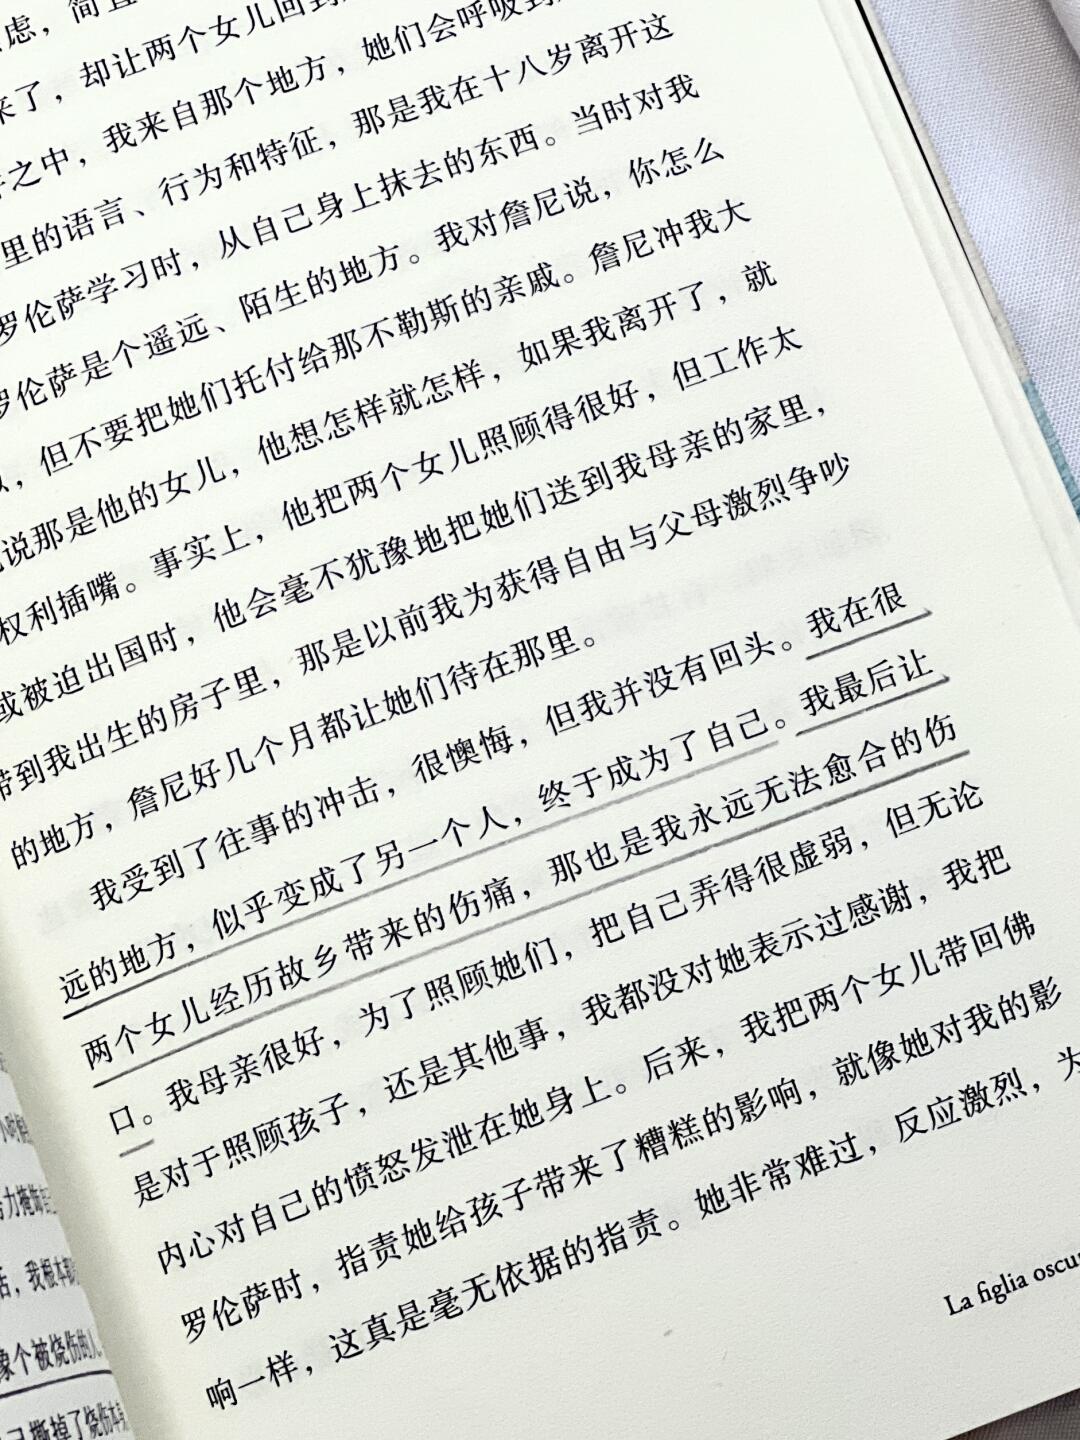 虑，简直
来了，却让两个女儿回到
之中，我来自那个地方，她们会呼吸到
里的语言、行为和特征，那是我在十八岁离开这
罗伦萨学习时，从自己身上抹去的东西。当时对我
罗伦萨是个遥远、陌生的地方。我对詹尼说，你怎么
，但不要把她们托付给那不勒斯的亲戚。詹尼冲我大
说那是他的女儿，他想怎样就怎样，如果我离开了，就
权利插嘴。事实上，他把两个女儿照顾得很好，但工作太
或被迫出国时，他会毫不犹豫地把她们送到我母亲的家里，
带到我出生的房子里，那是以前我为获得自由与父母激烈争吵
的地方，詹尼好几个月都让她们待在那里。
我受到了往事的冲击，很懊悔，但我并没有回头。我在很
远的地方，似乎变成了另一个人，终于成为了自己。我最后让
两个女儿经历故乡带来的伤痛，那也是我永远无法愈合的伤
口。我母亲很好，为了照顾她们，把自己弄得很虚弱，但无论
是对于照顾孩子，还是其他事，我都没对她表示过感谢，我把
内心对自己的愤怒发泄在她身上。后来，我把两个女儿带回佛
罗伦萨时，指责她给孩子带来了糟糕的影响，就像她对我的影
响一样，这真是毫无依据的指责。她非常难过，反应激烈，为
La figlia oscu
小时候
力掩饰
活，我根本
象个被烧伤的人
撕掉了烧伤本